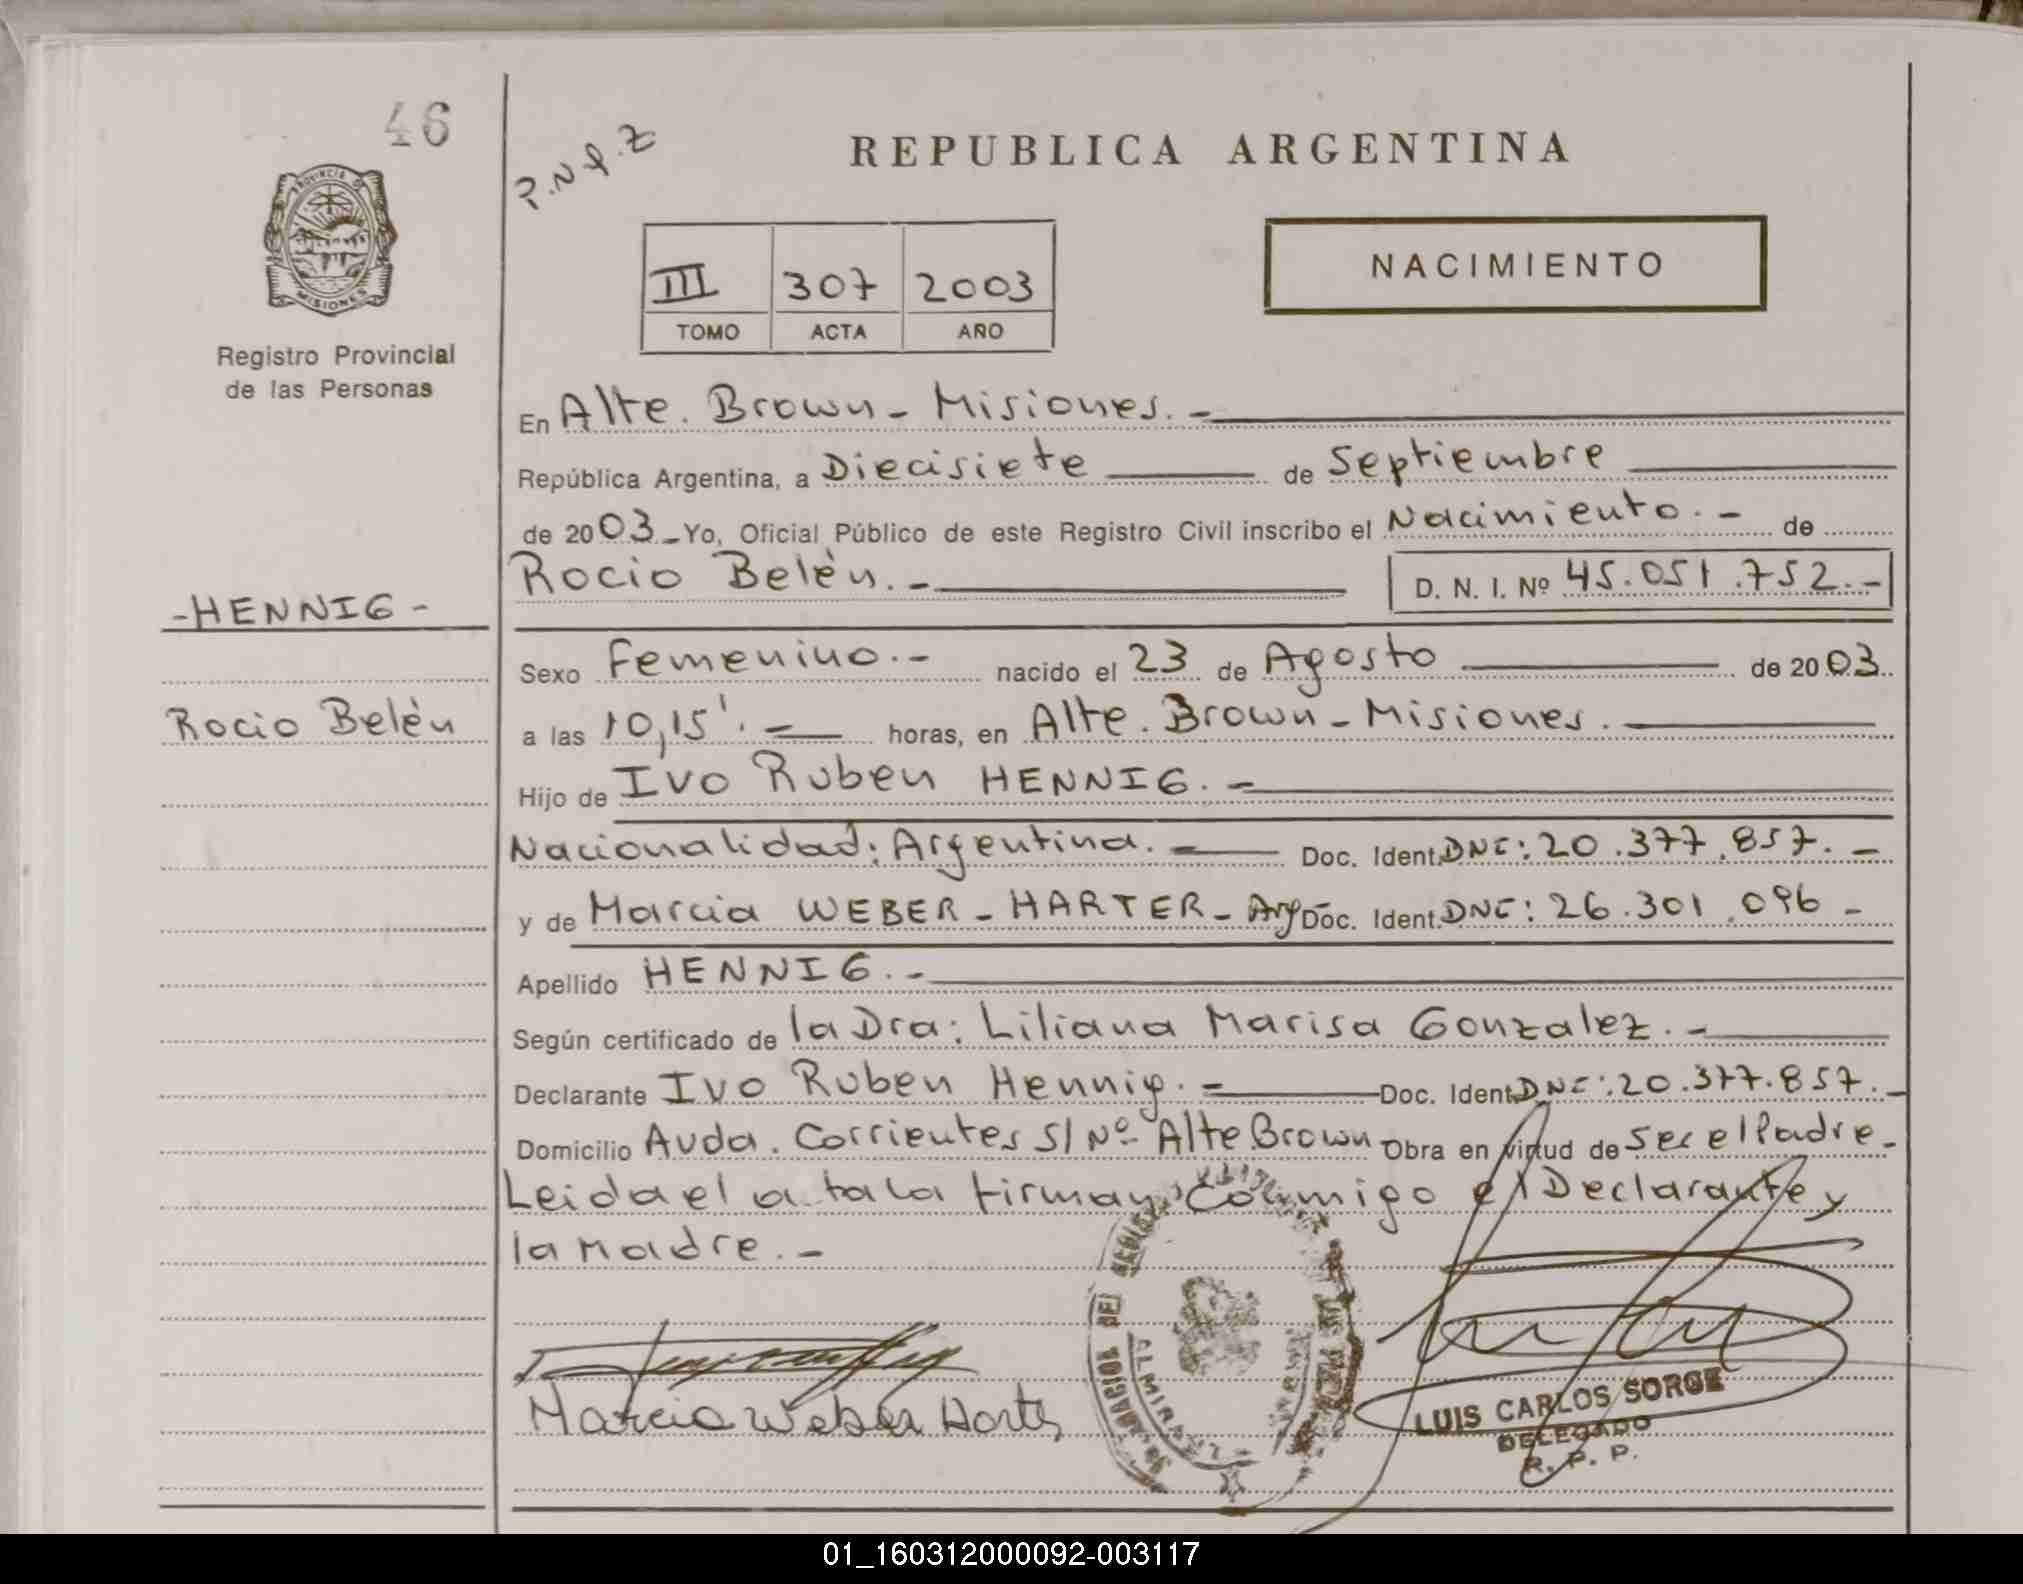 46
P.N.f.Z
REPUBLICA ARGENTINA
PROVINCIA DE
MISIONES
Registro Provincial
de las Personas
III 307 2003
TOMO ACTA AÑO
NACIMIENTO
En Alte. Brown - Misiones. -
República Argentina, a Diecisiete de Septiembre
de 2003 - Yo, Oficial Público de este Registro Civil inscribo el Nacimiento. - de
Rocio Belén. - D. N. I. Nº 45.051.752. -
- HENNIG -
Sexo Femenino. - nacido el 23 de Agosto de 2003
Rocio Belén
a las 10,15'. - horas, en Alte. Brown - Misiones. -
Hijo de Ivo Ruben HENNIG. -
Nacionalidad: Argentina. - Doc. Ident. DNI: 20.377.857. -
y de Marcia WEBER - HARTER - Arg Doc. Ident. DNI: 26.301.096 -
Apellido HENNIG. -
Según certificado de la Dra: Liliana Marisa Gonzalez. -
Declarante Ivo Ruben Hennig. - Doc. Ident DNI: 20.377.857. -
Domicilio Avda. Corrientes S/Nº Alte Brown Obra en virtud de ser el Padre -
Leida el a ta la firman Conmigo el Declarante y
la Madre. -
Marcia Weber Harter
ALMIRANTE
LUIS CARLOS SORGE
DELEGADO
R. P. P.
01_160312000092-003117